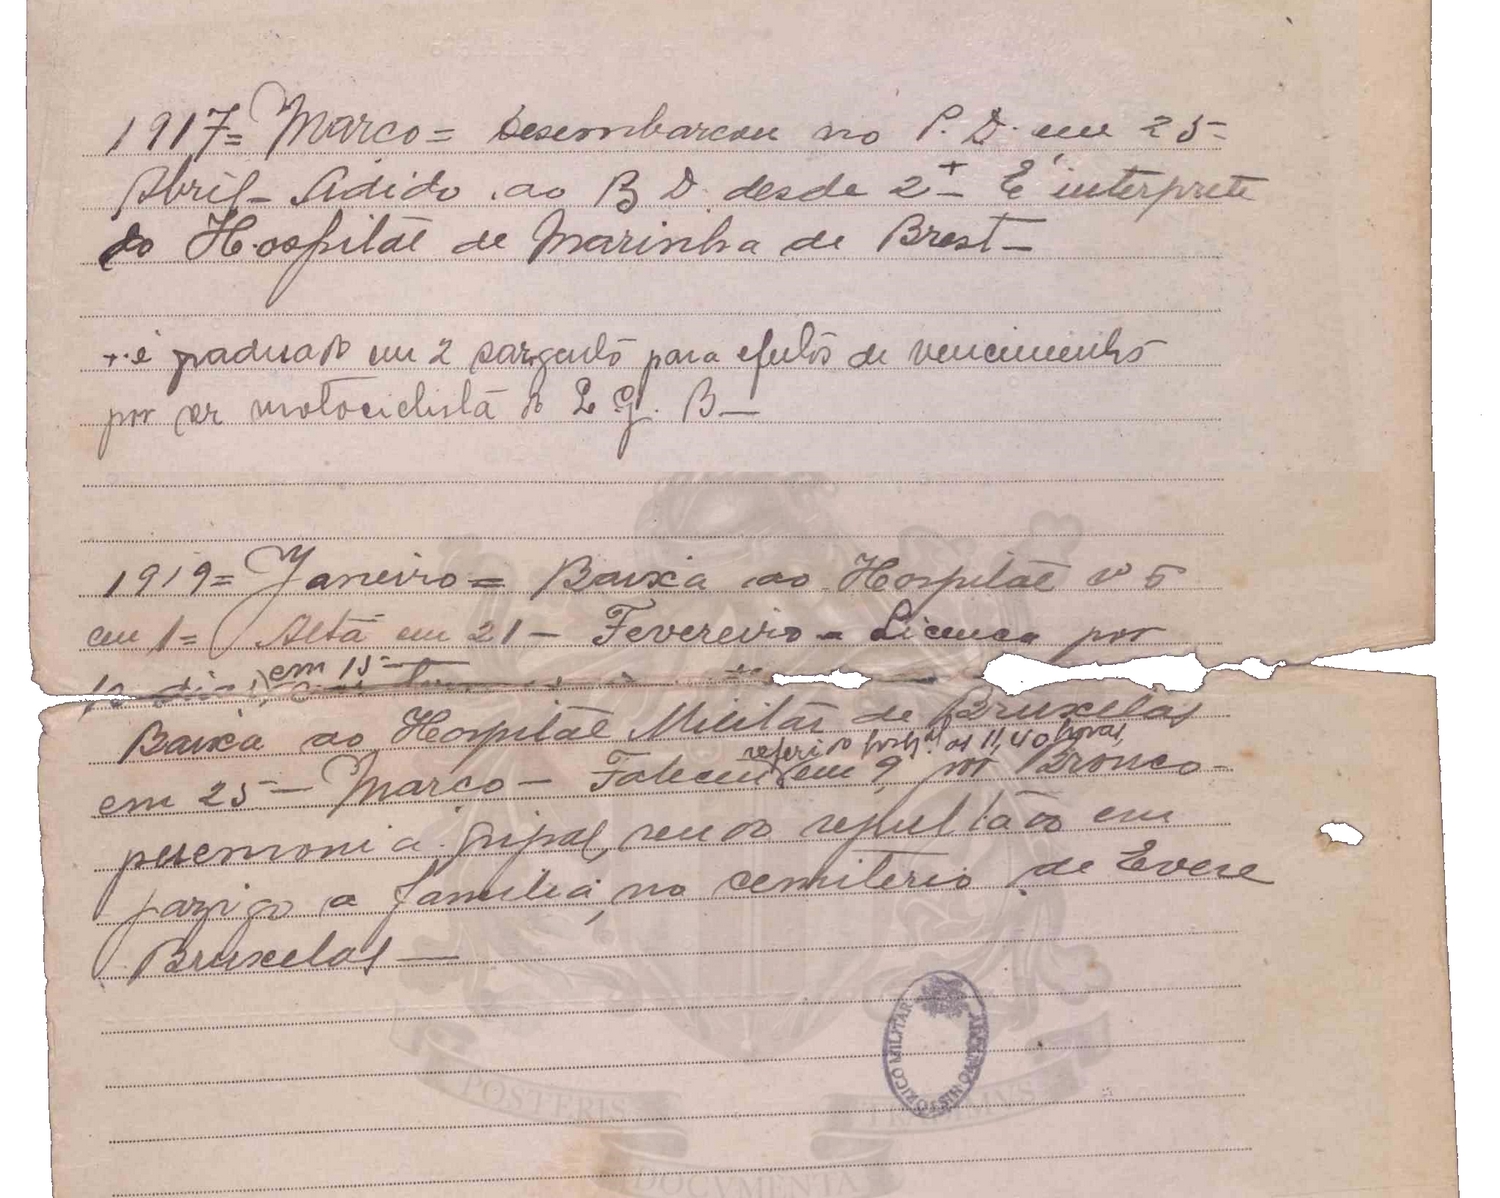 1917= Março= Desembarcou no P. D. em 25-
Abril- Adido ao B D. desde 2+- É interprete
do Hospital de Marinha de Brest-
+ é graduado em 2 sargento para efeitos de vencimentos
por ser motociclista do Q G. B-
1919= Janeiro= Baixa ao Hospital nº 5
em 1= Alta em 21- Fevereiro- Licença por
em 15-
dias
Baixa ao Hospital Militar de Bruxelas
referido hospal as 11,40 horas,
em 25- Março- Faleceu em 9, por Bronco-
pneumonia gripal, sendo sepultado em
jazigo a familia, no cemiterio de Evere
Bruxelas-
ARQUIVO HISTÓRICO MILITAR
POSTERIS
DOCVMENTA